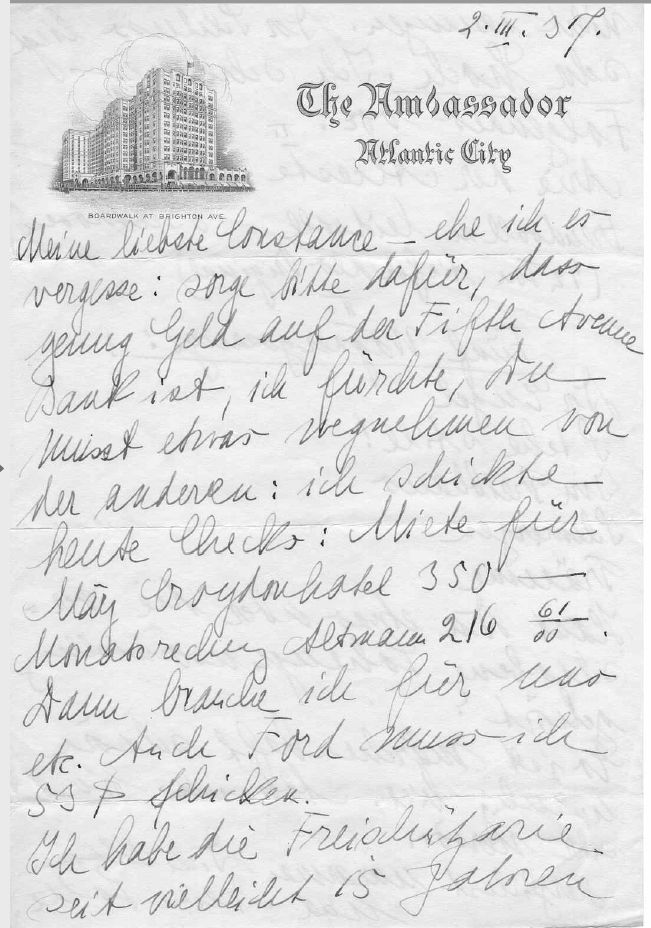 2. III. 37.
The Ambassador
Atlantic City
BOARDWALK AT BRIGHTON AVE.
Meine liebste Constance – ehe ich es
vergesse: sorge bitte dafür, dass
genug Geld auf der Fifth Avenue
Bank ist, ich fürchte, Du
musst etwas wegnehmen von
der anderen: ich schickte
heute Checks: Miete für
März Croydonhotel 350 —
Monatsrechng Altmann 216 61/00.
Dann brauche ich für uns
etc. Auch Ford muss ich
53 $ schicken.
Ich habe die Freischützarie
seit vielleicht 15 Jahren